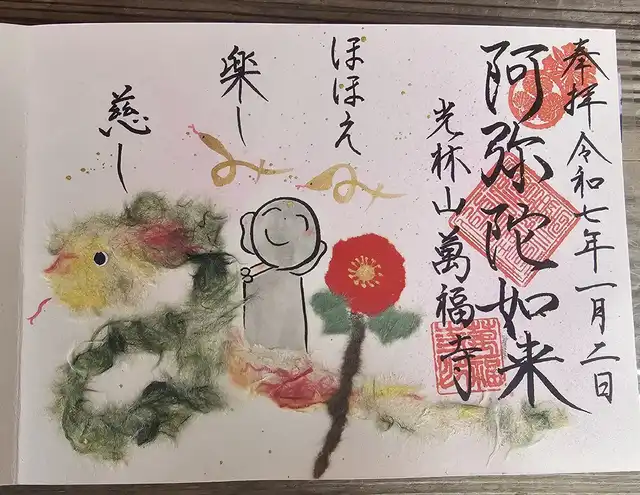 奉拝 令和七年一月二日
阿弥陀如来
光林山萬福寺
ほほえみ
楽しみ
慈しみ